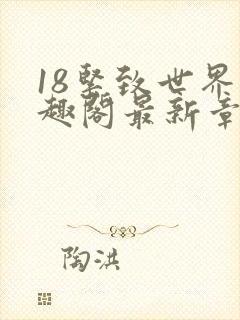 18坚致世界
趣阁最新章
陶洪